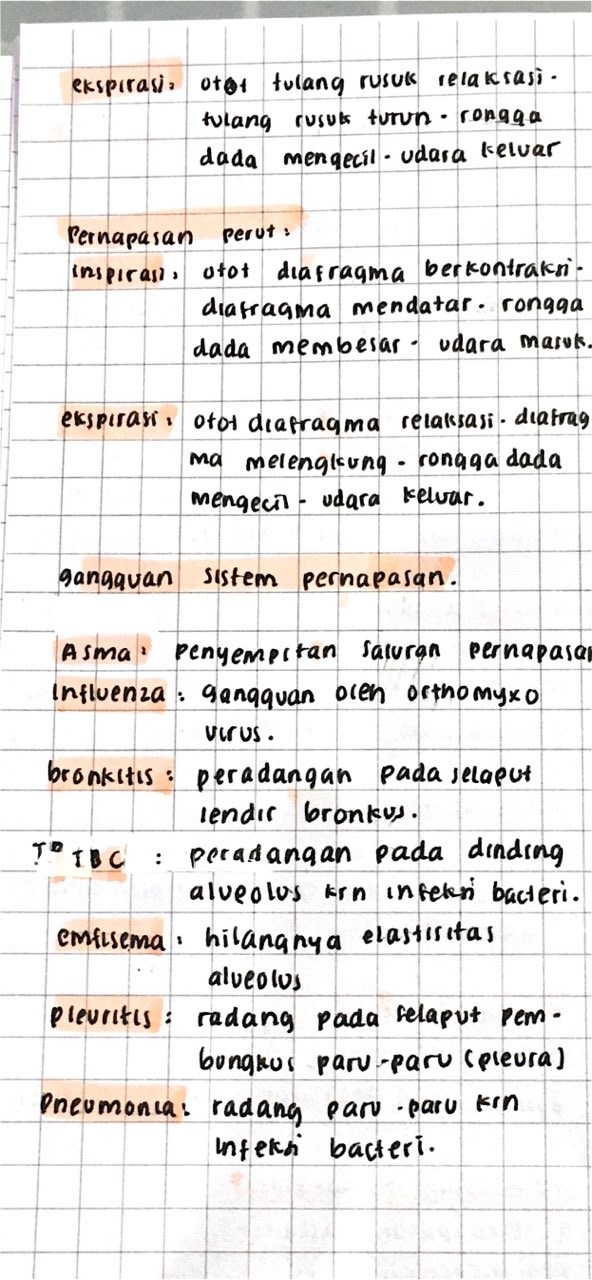 ekspirasi: otot tulang rusuk relaksasi -
tulang rusuk turun - rongga
dada mengecil - udara keluar
Pernapasan perut:
inspirasi: otot diafragma berkontraksi -
diafragma mendatar - rongga
dada membesar - udara masuk.
ekspirasi: otot diafragma relaksasi - diafrag
ma melengkung - rongga dada
mengecil - udara keluar.
gangguan sistem pernapasan.
Asma: Penyempitan saluran pernapasan
Influenza: gangguan oleh orthomyxo
virus.
bronkitis: peradangan pada selaput
lendir bronkus.
TBC: peradangan pada dinding
alveolus krn infeksi bacteri.
emfisema: hilangnya elastisitas
alveolus
pleuritis: radang pada selaput pem-
bungkus paru-paru (pleura)
pneumonia: radang paru-paru krn
infeksi bacteri.